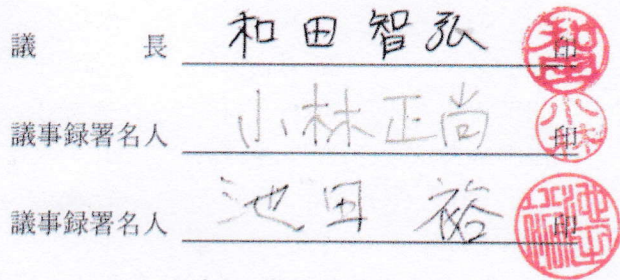 議長 和田智弘 印
議事録署名人 小林正尚 印
議事録署名人 池田 裕 印